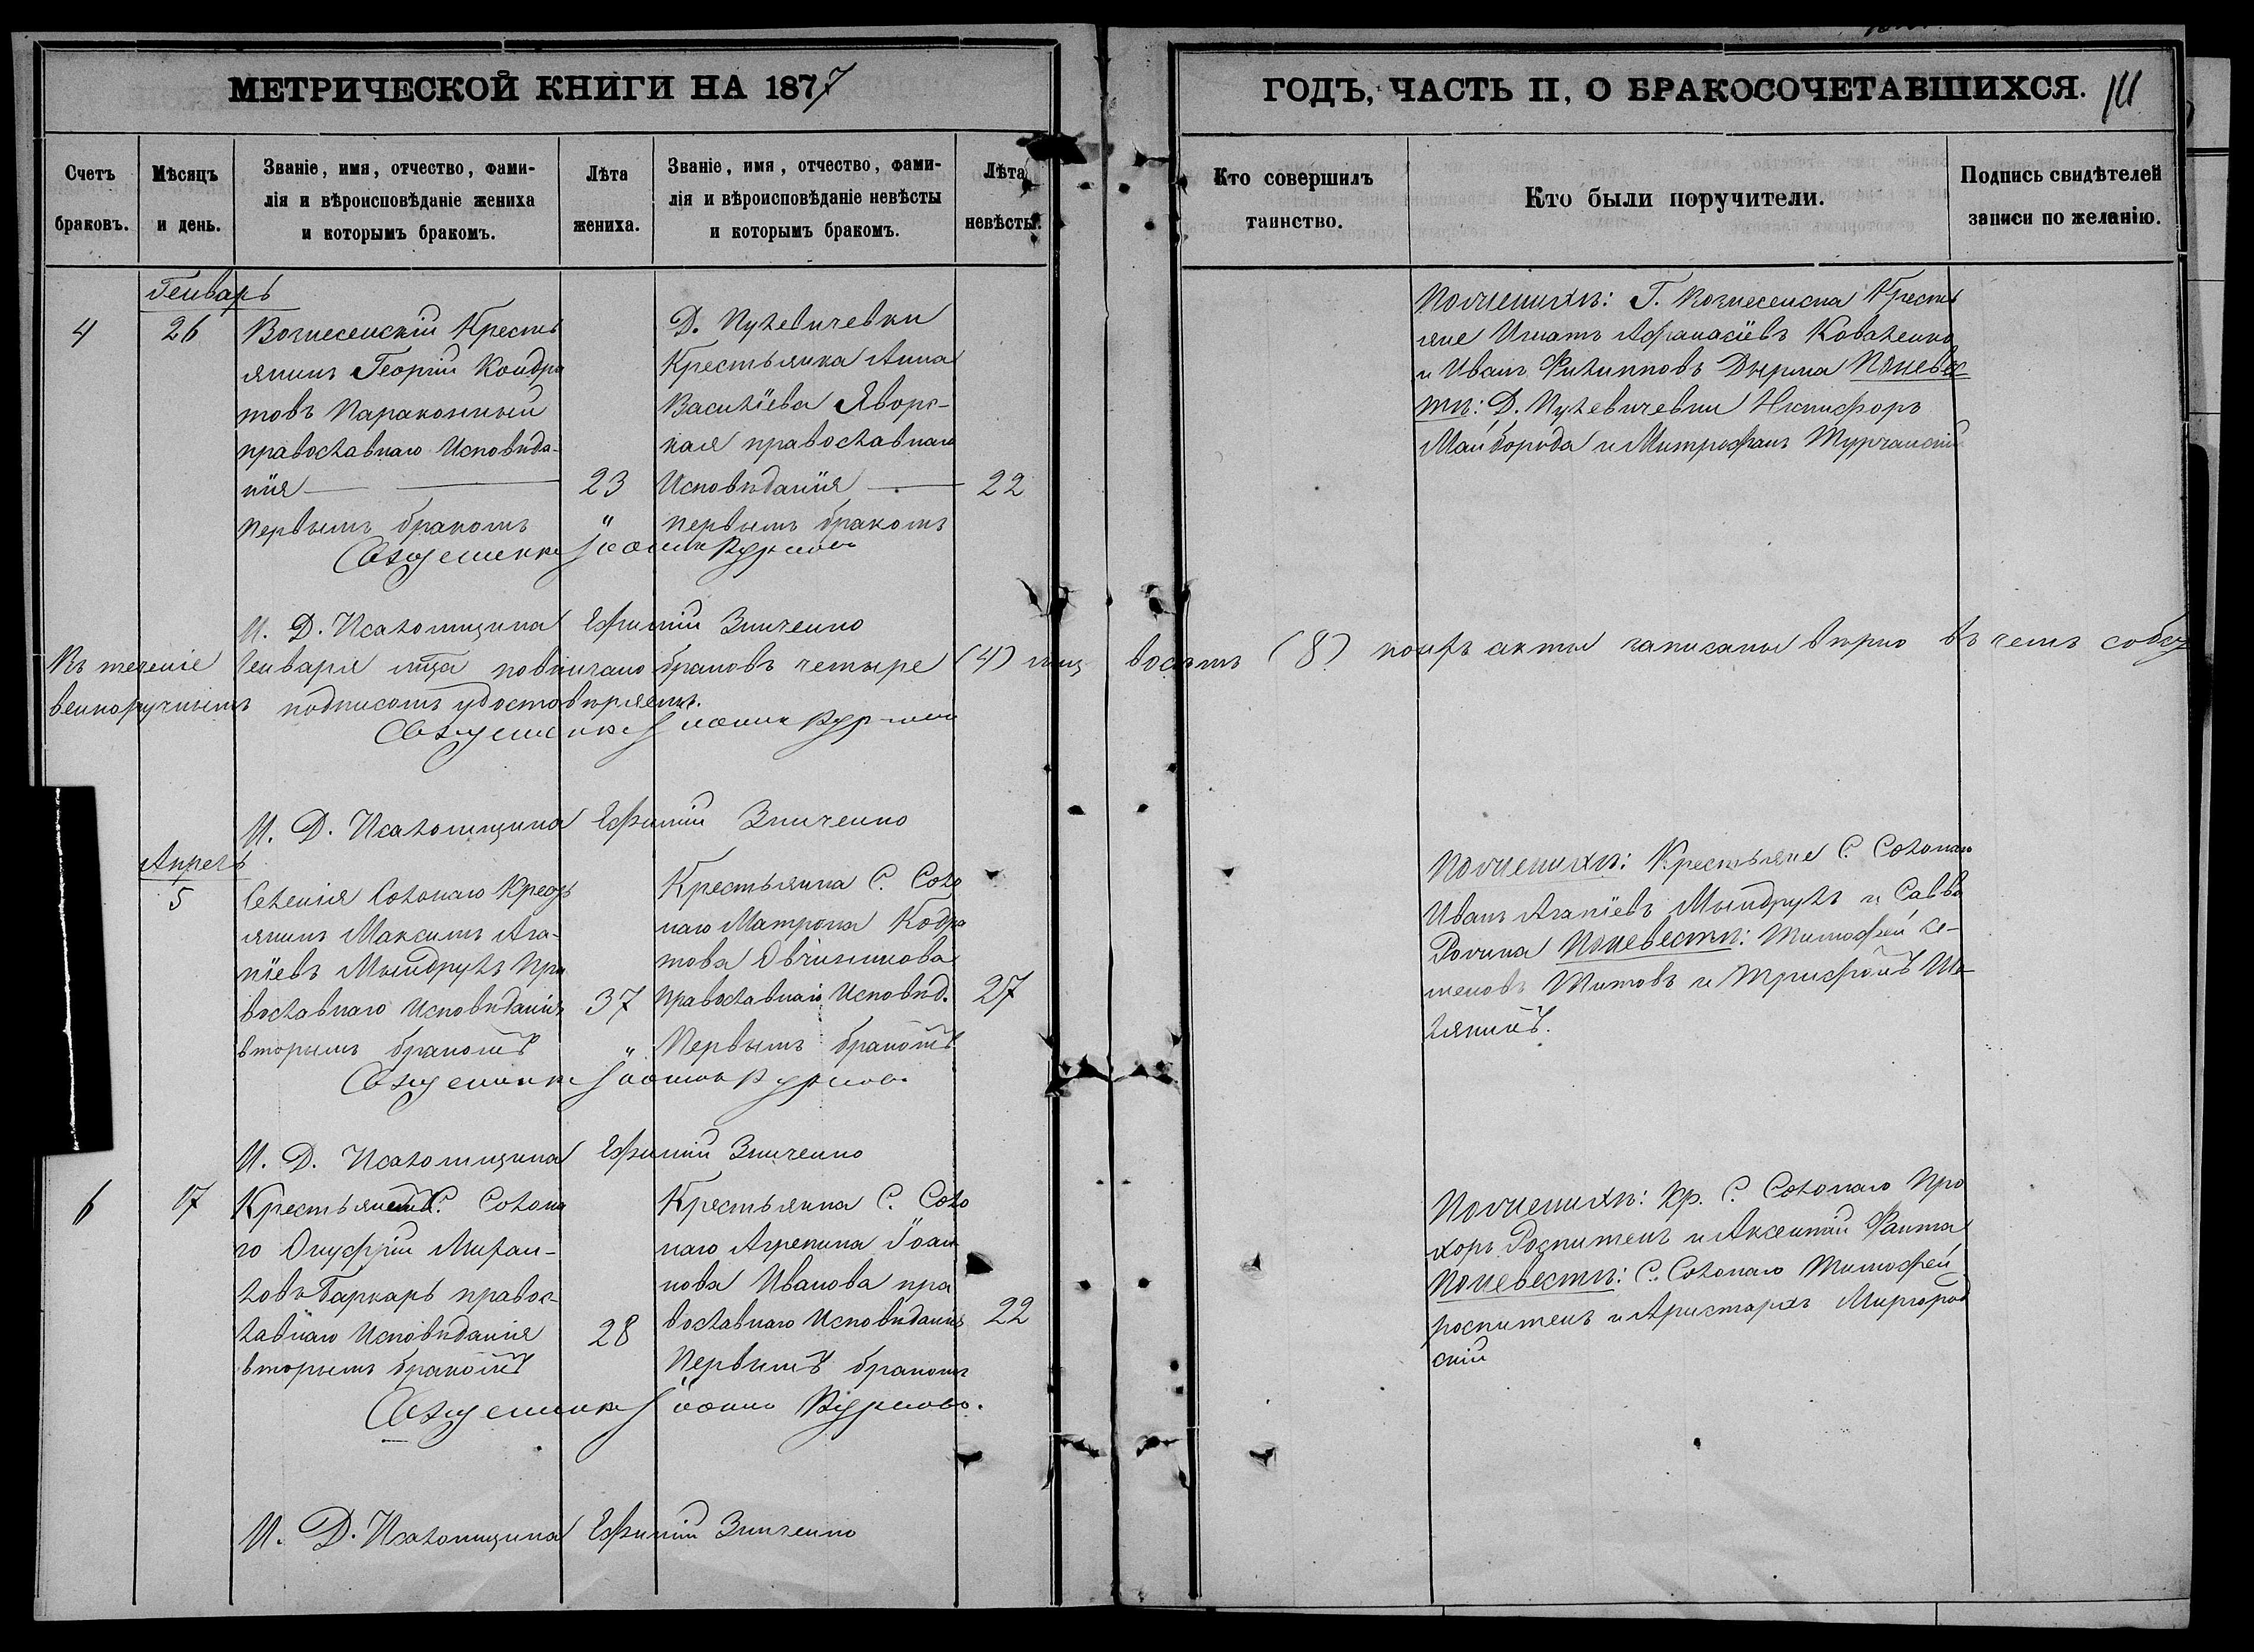 МЕТРИЧЕСКОЙ КНИГИ НА 1877
ГОДЪ, ЧАСТЬ II, О БРАКОСОЧЕТАВШИХСЯ.
Счетъ браковъ.
Мѣсяцъ и день.
Званіе, имя, отчество, фами-
лія и вѣроисповѣданіе жениха
и которымъ бракомъ.
Лѣта жениха.
Званіе, имя, отчество, фами-
лія и вѣроисповѣданіе невѣсты
и которымъ бракомъ.
Лѣта невѣсты.
Кто совершилъ таинство.
Кто были поручители.
Подпись свидѣтелей
записи по желанію.
Генварь
4
26
Вознесенскій Кресть
янинъ Георгій Кондра
товъ Параконный
православнаго Исповѣда-
нія
Первымъ бракомъ
23
"
Д. Пулевичевки
Крестьянка Анна
Василіева Яворс-
кая православнаго
Исповѣданія
первымъ бракомъ
22
По женихѣ: Г. Вознесенска Кресть
яне Игнатъ Афанасіевъ Коваленко
и Иванъ Филипповъ Дырма По невѣс
тѣ: Д. Пулевичевки Никифоръ
Майборода и Митрофанъ Турчанскій
Священникъ Іоаннъ
И. Д. Псаломщика Ефимій Зинченко
Въ теченіе Генваря мца повѣнчано браковъ четыре (4) лиц восемь (8) коихъ акты записаны вѣрно въ чемъ собст
венноручнымъ подписомъ удостовѣряемъ.
Священникъ Іоаннъ
И. Д. Псаломщика Ефимій Зинченко
Апрель
5
Селенія Солонаго Крест
янинъ Максимъ Ага-
піевъ Мындрулъ Пра
вославнаго Исповѣданія
вторымъ бракомъ
37
"
Крестьянка С. Соло
наго Матрона Кодра
това Овчинникова
Православнаго Исповѣд.
Первымъ бракомъ
27
По женихѣ: Крестьяне С. Солонаго
Иванъ Агапіевъ Мындрулъ и Савва
По невестѣ: Тимофей Се-
меновъ Титовъ и Трифонъ
Священникъ Іоаннъ
И. Д. Псаломщика Ефимій Зинченко
6
17
Крестьянинъ С. Солона
го Онуфрій Михаи-
ловъ Баркарь правос-
лавнаго Исповѣданія
вторымъ бракомъ
28
Крестьянка С. Соло
наго Агрепина Іоан
нова Иванова пра
вославнаго Исповѣданія
Первымъ бракомъ
22
По женихѣ: Кр. С. Солонаго Про
хоръ и Аксентій
По невестѣ: С. Солонаго Тимофей
и Аристархъ Миргород
скій
Священникъ Іоаннъ
И. Д. Псаломщика Ефимій Зинченко